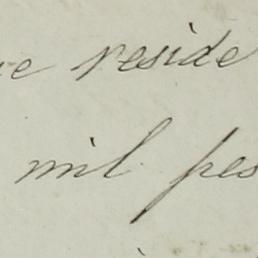 reside
mil pes